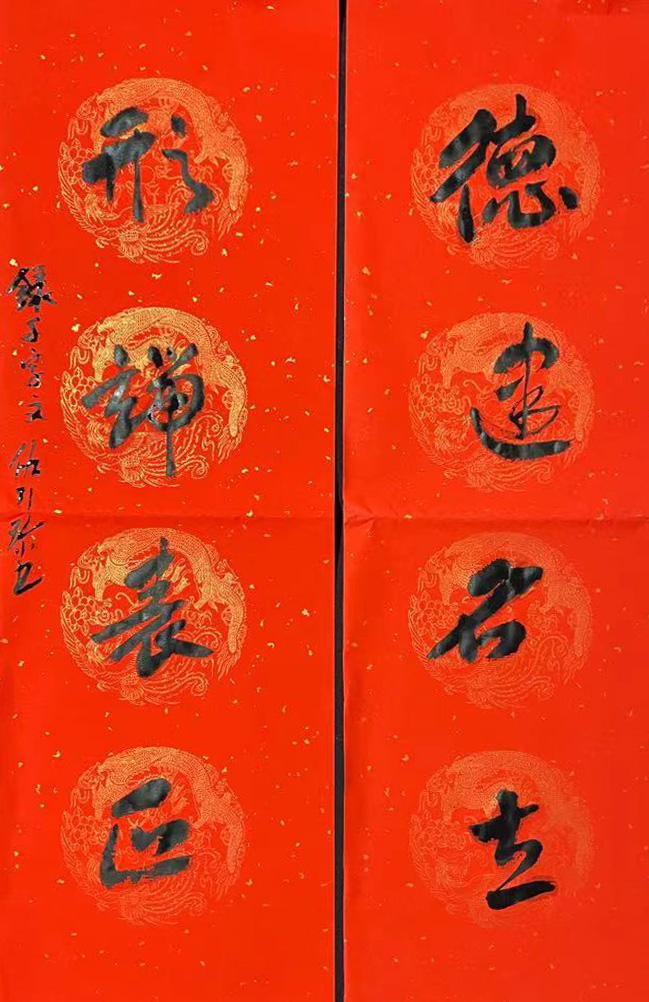 德建名立
形端表正
錄千字文